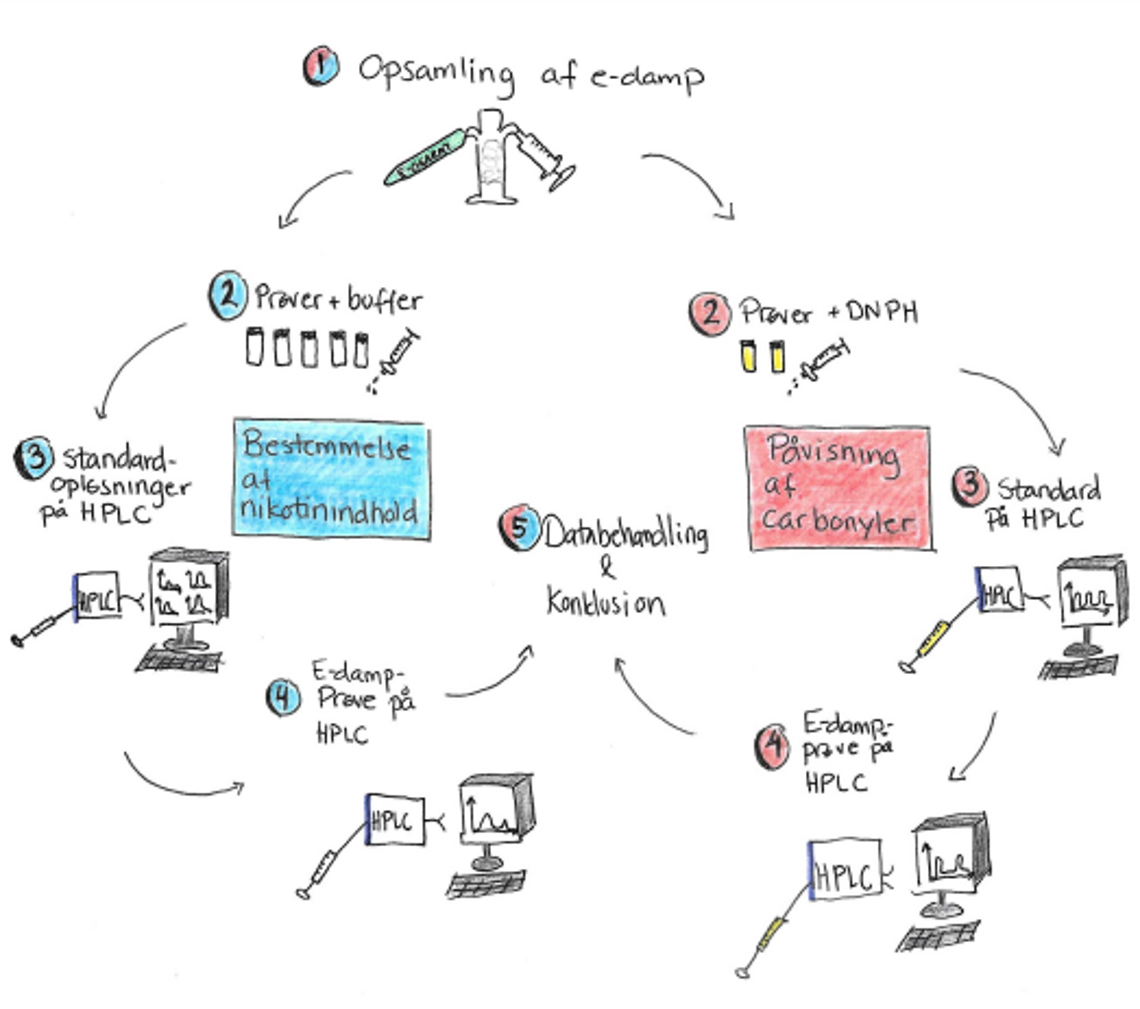 1 Opsamling af e-damp
E-CIGARET
2 Prøver + buffer
Bestemmelse
af
nikotinindhold
3 Standard-
opløsninger
på HPLC
HPLC
4 E-damp-
Prøve på
HPLC
HPLC
2 Prøver + DNPH
Påvisning
af
carbonyler
3 Standard
På HPLC
HPLC
4 E-damp-
prøve på
HPLC
HPLC
5 Databehandling
&
Konklusion